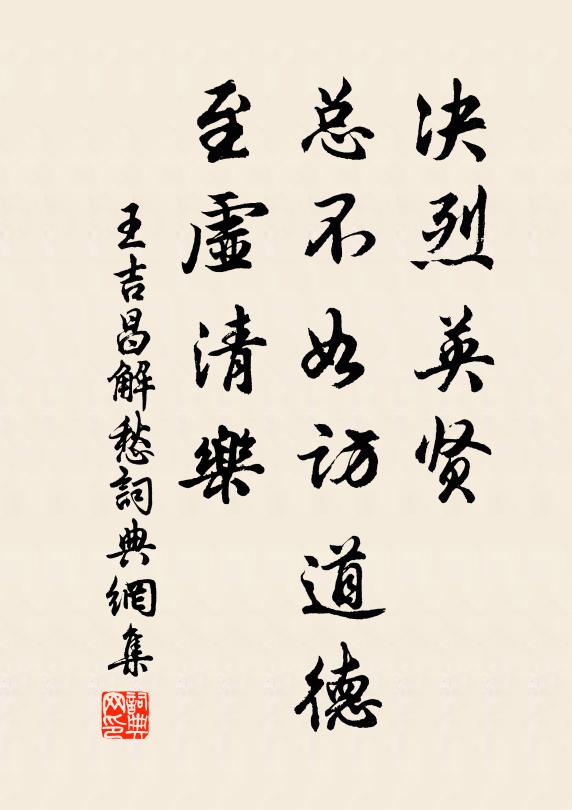 决烈英贤
总不如访道德
至虚清樂
王吉昌解愁詞典網集
詞典网印